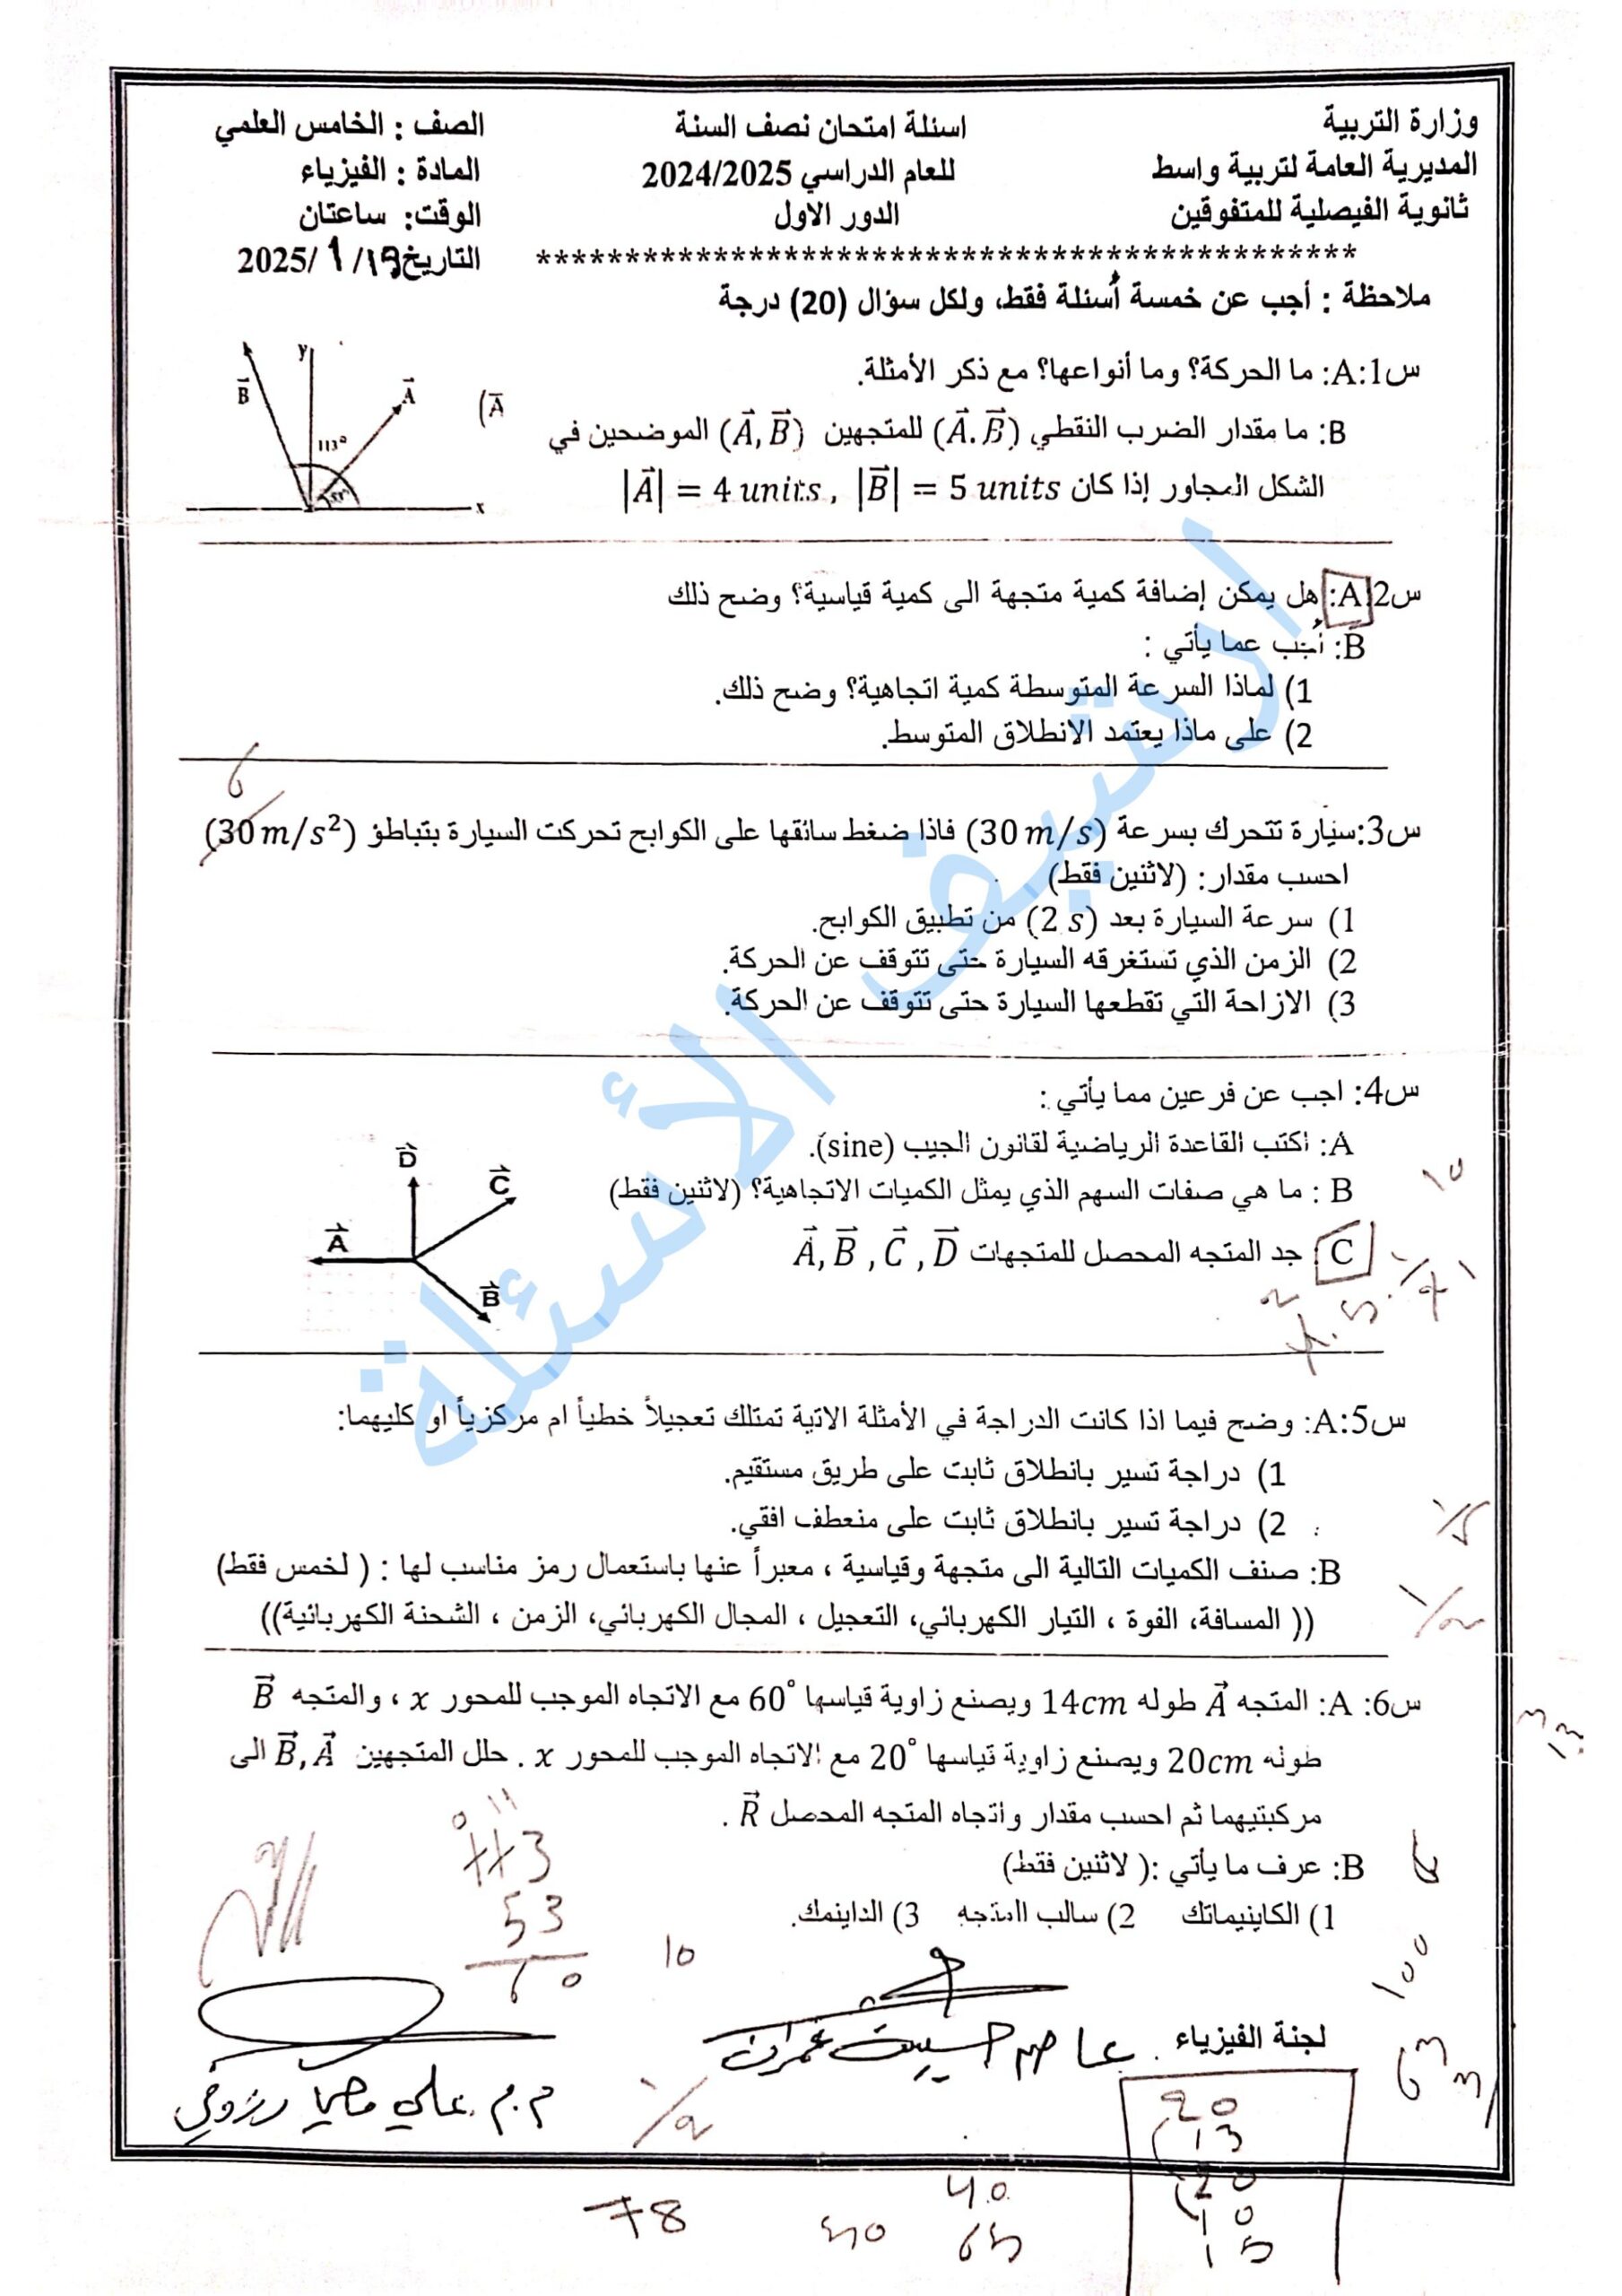 وزارة التربية
المديرية العامة لتربية واسط
ثانوية الفيصلية للمتفوقين
اسئلة امتحان نصف السنة
للعام الدراسي 2024/2025
الدور الاول
الصف : الخامس العلمي
المادة : الفيزياء
الوقت: ساعتان
التاريخ 19/ 1 /2025
**********************************************
ملاحظة : أجب عن خمسة أسئلة فقط، ولكل سؤال (20) درجة
س1:A: ما الحركة؟ وما أنواعها؟ مع ذكر الأمثلة.
B: ما مقدار الضرب النقطي (A⃗.B⃗) للمتجهين (A⃗,B⃗) الموضحين في
(A⃗
الشكل المجاور إذا كان |A⃗| = 4 units , |B⃗| = 5 units
y
B⃗
A⃗
113°
53°
x
س2:A: هل يمكن إضافة كمية متجهة الى كمية قياسية؟ وضح ذلك
B: أجب عما يأتي :
1) لماذا السرعة المتوسطة كمية اتجاهية؟ وضح ذلك.
2) على ماذا يعتمد الانطلاق المتوسط.
6
س3:سيارة تتحرك بسرعة (30 m/s) فاذا ضغط سائقها على الكوابح تحركت السيارة بتباطؤ (30 m/s²)
احسب مقدار: (لاثنين فقط)
1) سرعة السيارة بعد (2 s) من تطبيق الكوابح.
2) الزمن الذي تستغرقه السيارة حتى تتوقف عن الحركة.
3) الازاحة التي تقطعها السيارة حتى تتوقف عن الحركة.
س4: اجب عن فرعين مما يأتي :
A: اكتب القاعدة الرياضية لقانون الجيب (sine).
B : ما هي صفات السهم الذي يمثل الكميات الاتجاهية؟ (لاثنين فقط)
C : جد المتجه المحصل للمتجهات A⃗, B⃗ , C⃗ , D⃗
D⃗
C⃗
A⃗
B⃗
10
س5:A: وضح فيما اذا كانت الدراجة في الأمثلة الاتية تمتلك تعجيلاً خطياً ام مركزياً او كليهما:
1) دراجة تسير بانطلاق ثابت على طريق مستقيم.
2) دراجة تسير بانطلاق ثابت على منعطف افقي.
B: صنف الكميات التالية الى متجهة وقياسية ، معبراً عنها باستعمال رمز مناسب لها : ( لخمس فقط)
(( المسافة، القوة ، التيار الكهربائي، التعجيل ، المجال الكهربائي، الزمن ، الشحنة الكهربائية))
س6: A: المتجه A⃗ طوله 14cm ويصنع زاوية قياسها 60° مع الاتجاه الموجب للمحور x ، والمتجه B⃗
طوله 20cm ويصنع زاوية قياسها 20° مع الاتجاه الموجب للمحور x . حلل المتجهين B⃗, A⃗ الى
مركبتيهما ثم احسب مقدار واتجاه المتجه المحصل R⃗ .
B: عرف ما يأتي :( لاثنين فقط)
1) الكاينيماتك 2) سالب المتجه 3) الداينمك.
113
53
60
10
100
لجنة الفيزياء
عاصم حسين عمران
م.م. علي
20
13
20
10
15
40
65
78
ارشيف الأسئلة